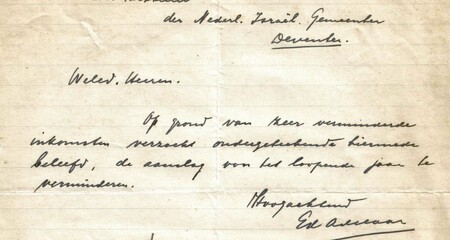 der Nederl. Israël. Gemeente
Deventer.
Weled. Heeren.
Op grond van zeer verminderde
inkomsten verzoekt ondergeteekende hiermede
beleefd, de aanslag van het loopende jaar te
verminderen.
Hoogachtend
Ed